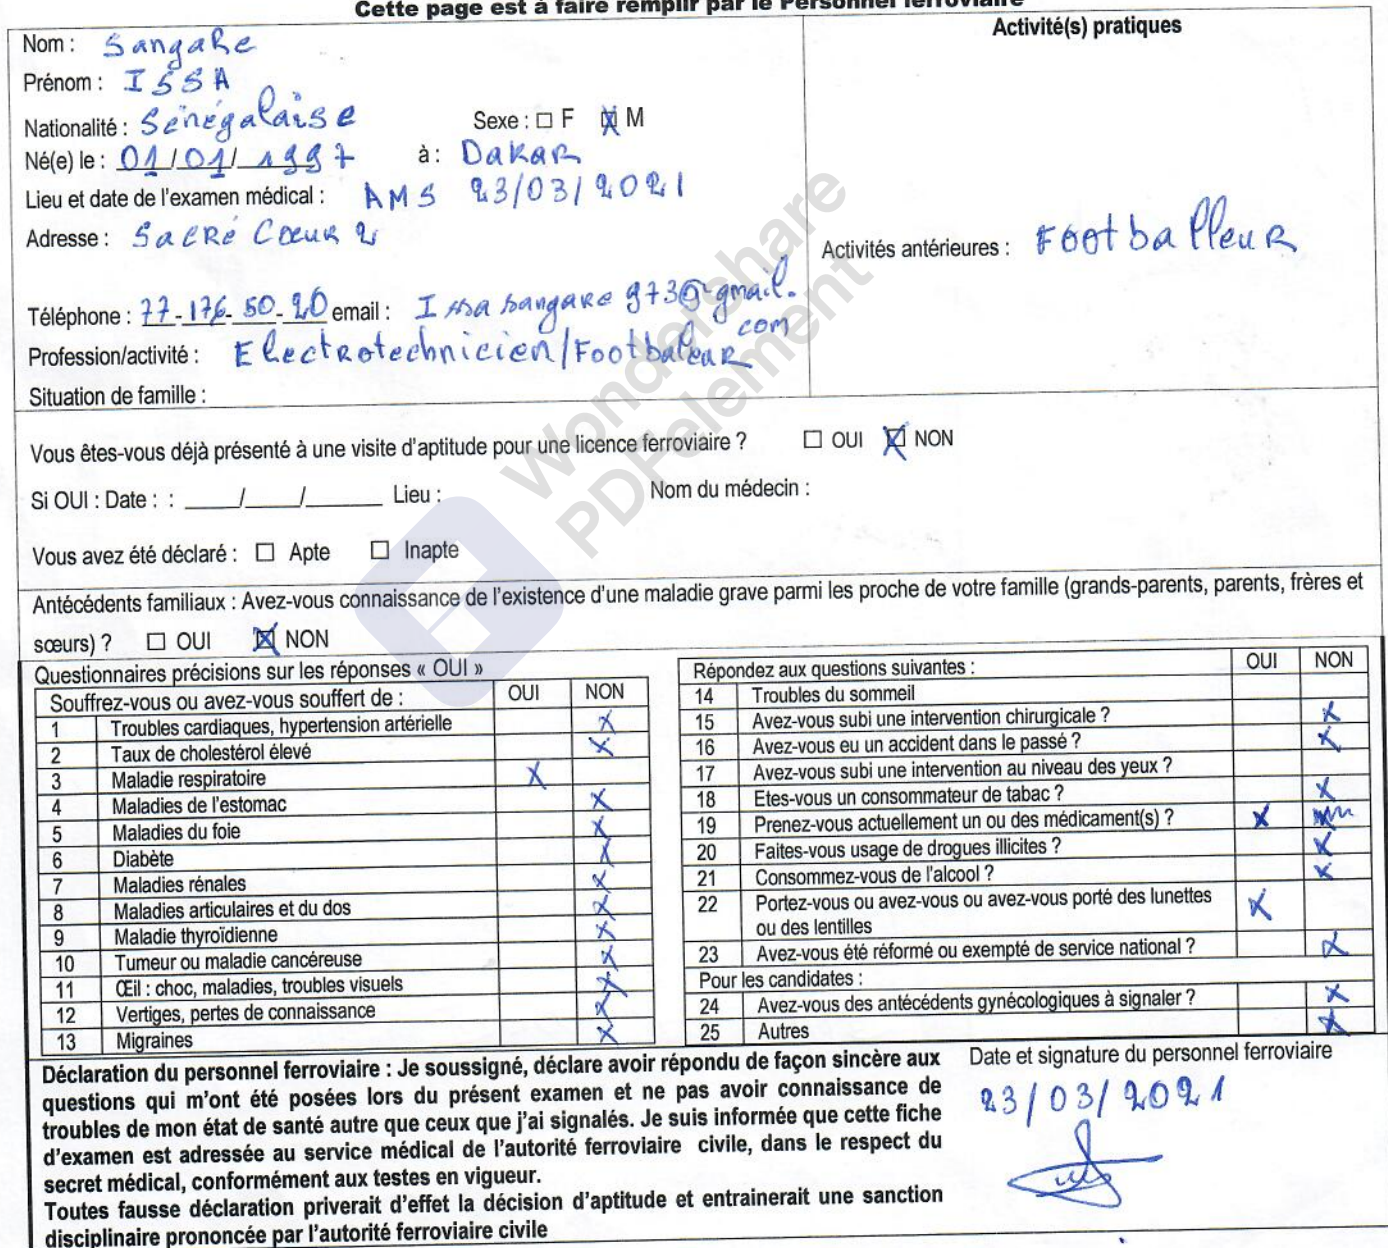 Cette page est à faire remplir par le Personnel ferroviaire
Nom : Sangare
Prénom : ISSA
Nationalité : Sénégalaise Sexe : ☐ F ☒ M
Né(e) le : 01/01/1997 à : Dakar
Lieu et date de l'examen médical : AMS 23/03/2021
Adresse : Sacré Cœur 2
Téléphone : 77-176-50-20 email : Issa sangare 973@gmail.
com
Profession/activité : Electrotechnicien/Footbaleur
Situation de famille :
Activité(s) pratiques
Activités antérieures : Footballeur
Vous êtes-vous déjà présenté à une visite d'aptitude pour une licence ferroviaire ? ☐ OUI ☒ NON
Si OUI : Date : : ____/____/______ Lieu : Nom du médecin :
Vous avez été déclaré : ☐ Apte ☐ Inapte
Antécédents familiaux : Avez-vous connaissance de l'existence d'une maladie grave parmi les proche de votre famille (grands-parents, parents, frères et
sœurs) ? ☐ OUI ☒ NON
Questionnaires précisions sur les réponses « OUI »
Souffrez-vous ou avez-vous souffert de : OUI NON
1 Troubles cardiaques, hypertension artérielle X
2 Taux de cholestérol élevé X
3 Maladie respiratoire X
4 Maladies de l'estomac X
5 Maladies du foie X
6 Diabète X
7 Maladies rénales X
8 Maladies articulaires et du dos X
9 Maladie thyroïdienne X
10 Tumeur ou maladie cancéreuse X
11 Œil : choc, maladies, troubles visuels X
12 Vertiges, pertes de connaissance X
13 Migraines X
Répondez aux questions suivantes : OUI NON
14 Troubles du sommeil
15 Avez-vous subi une intervention chirurgicale ? X
16 Avez-vous eu un accident dans le passé ? X
17 Avez-vous subi une intervention au niveau des yeux ?
18 Etes-vous un consommateur de tabac ? X
19 Prenez-vous actuellement un ou des médicament(s) ? X
20 Faites-vous usage de drogues illicites ? X
21 Consommez-vous de l'alcool ? X
22 Portez-vous ou avez-vous ou avez-vous porté des lunettes
ou des lentilles X
23 Avez-vous été réformé ou exempté de service national ? X
Pour les candidates :
24 Avez-vous des antécédents gynécologiques à signaler ? X
25 Autres X
Déclaration du personnel ferroviaire : Je soussigné, déclare avoir répondu de façon sincère aux
questions qui m'ont été posées lors du présent examen et ne pas avoir connaissance de
troubles de mon état de santé autre que ceux que j'ai signalés. Je suis informée que cette fiche
d'examen est adressée au service médical de l'autorité ferroviaire civile, dans le respect du
secret médical, conformément aux testes en vigueur.
Toutes fausse déclaration priverait d'effet la décision d'aptitude et entrainerait une sanction
disciplinaire prononcée par l'autorité ferroviaire civile
Date et signature du personnel ferroviaire
23/03/2021
Wondershare
PDFelement